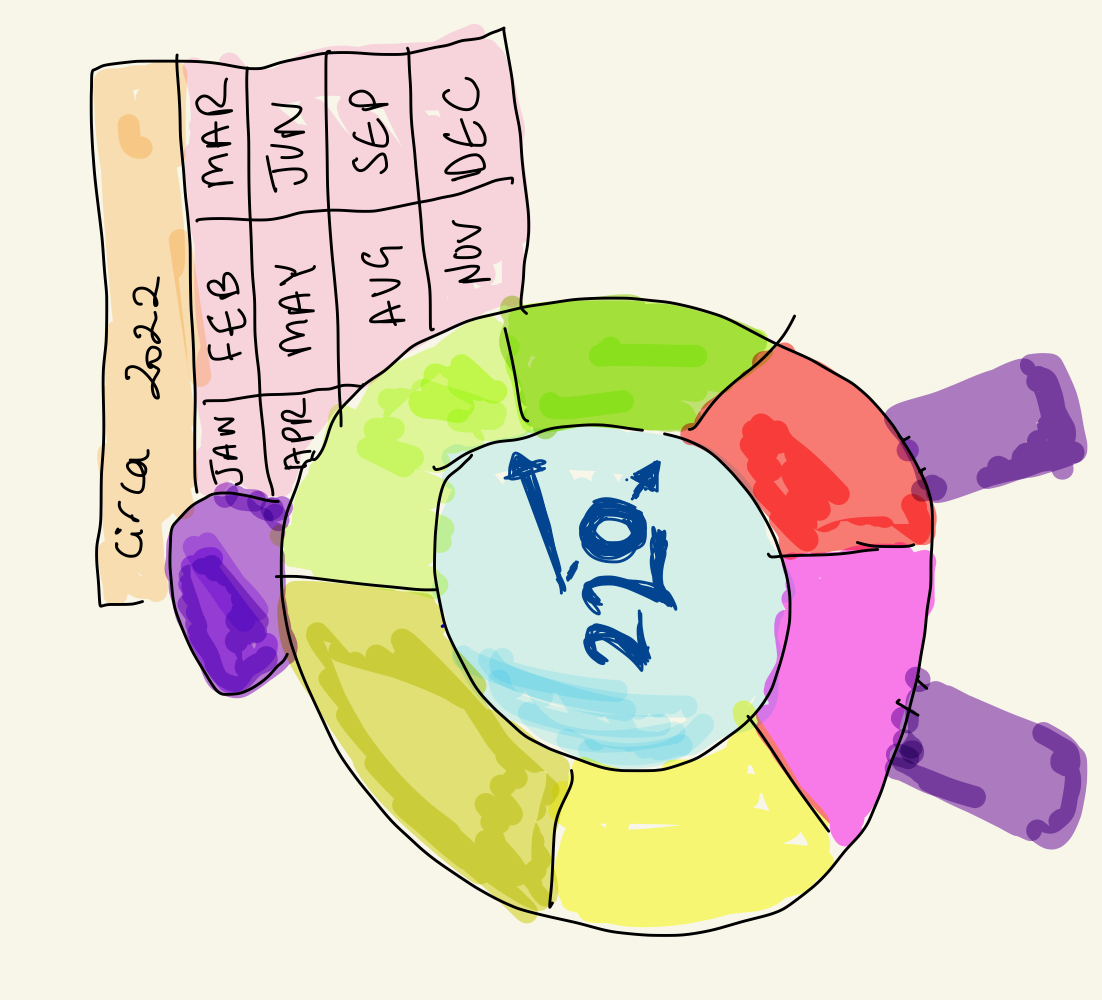 Circa 2022
JAN FEB MAR
APR MAY JUN
AUG SEP
NOV DEC
220